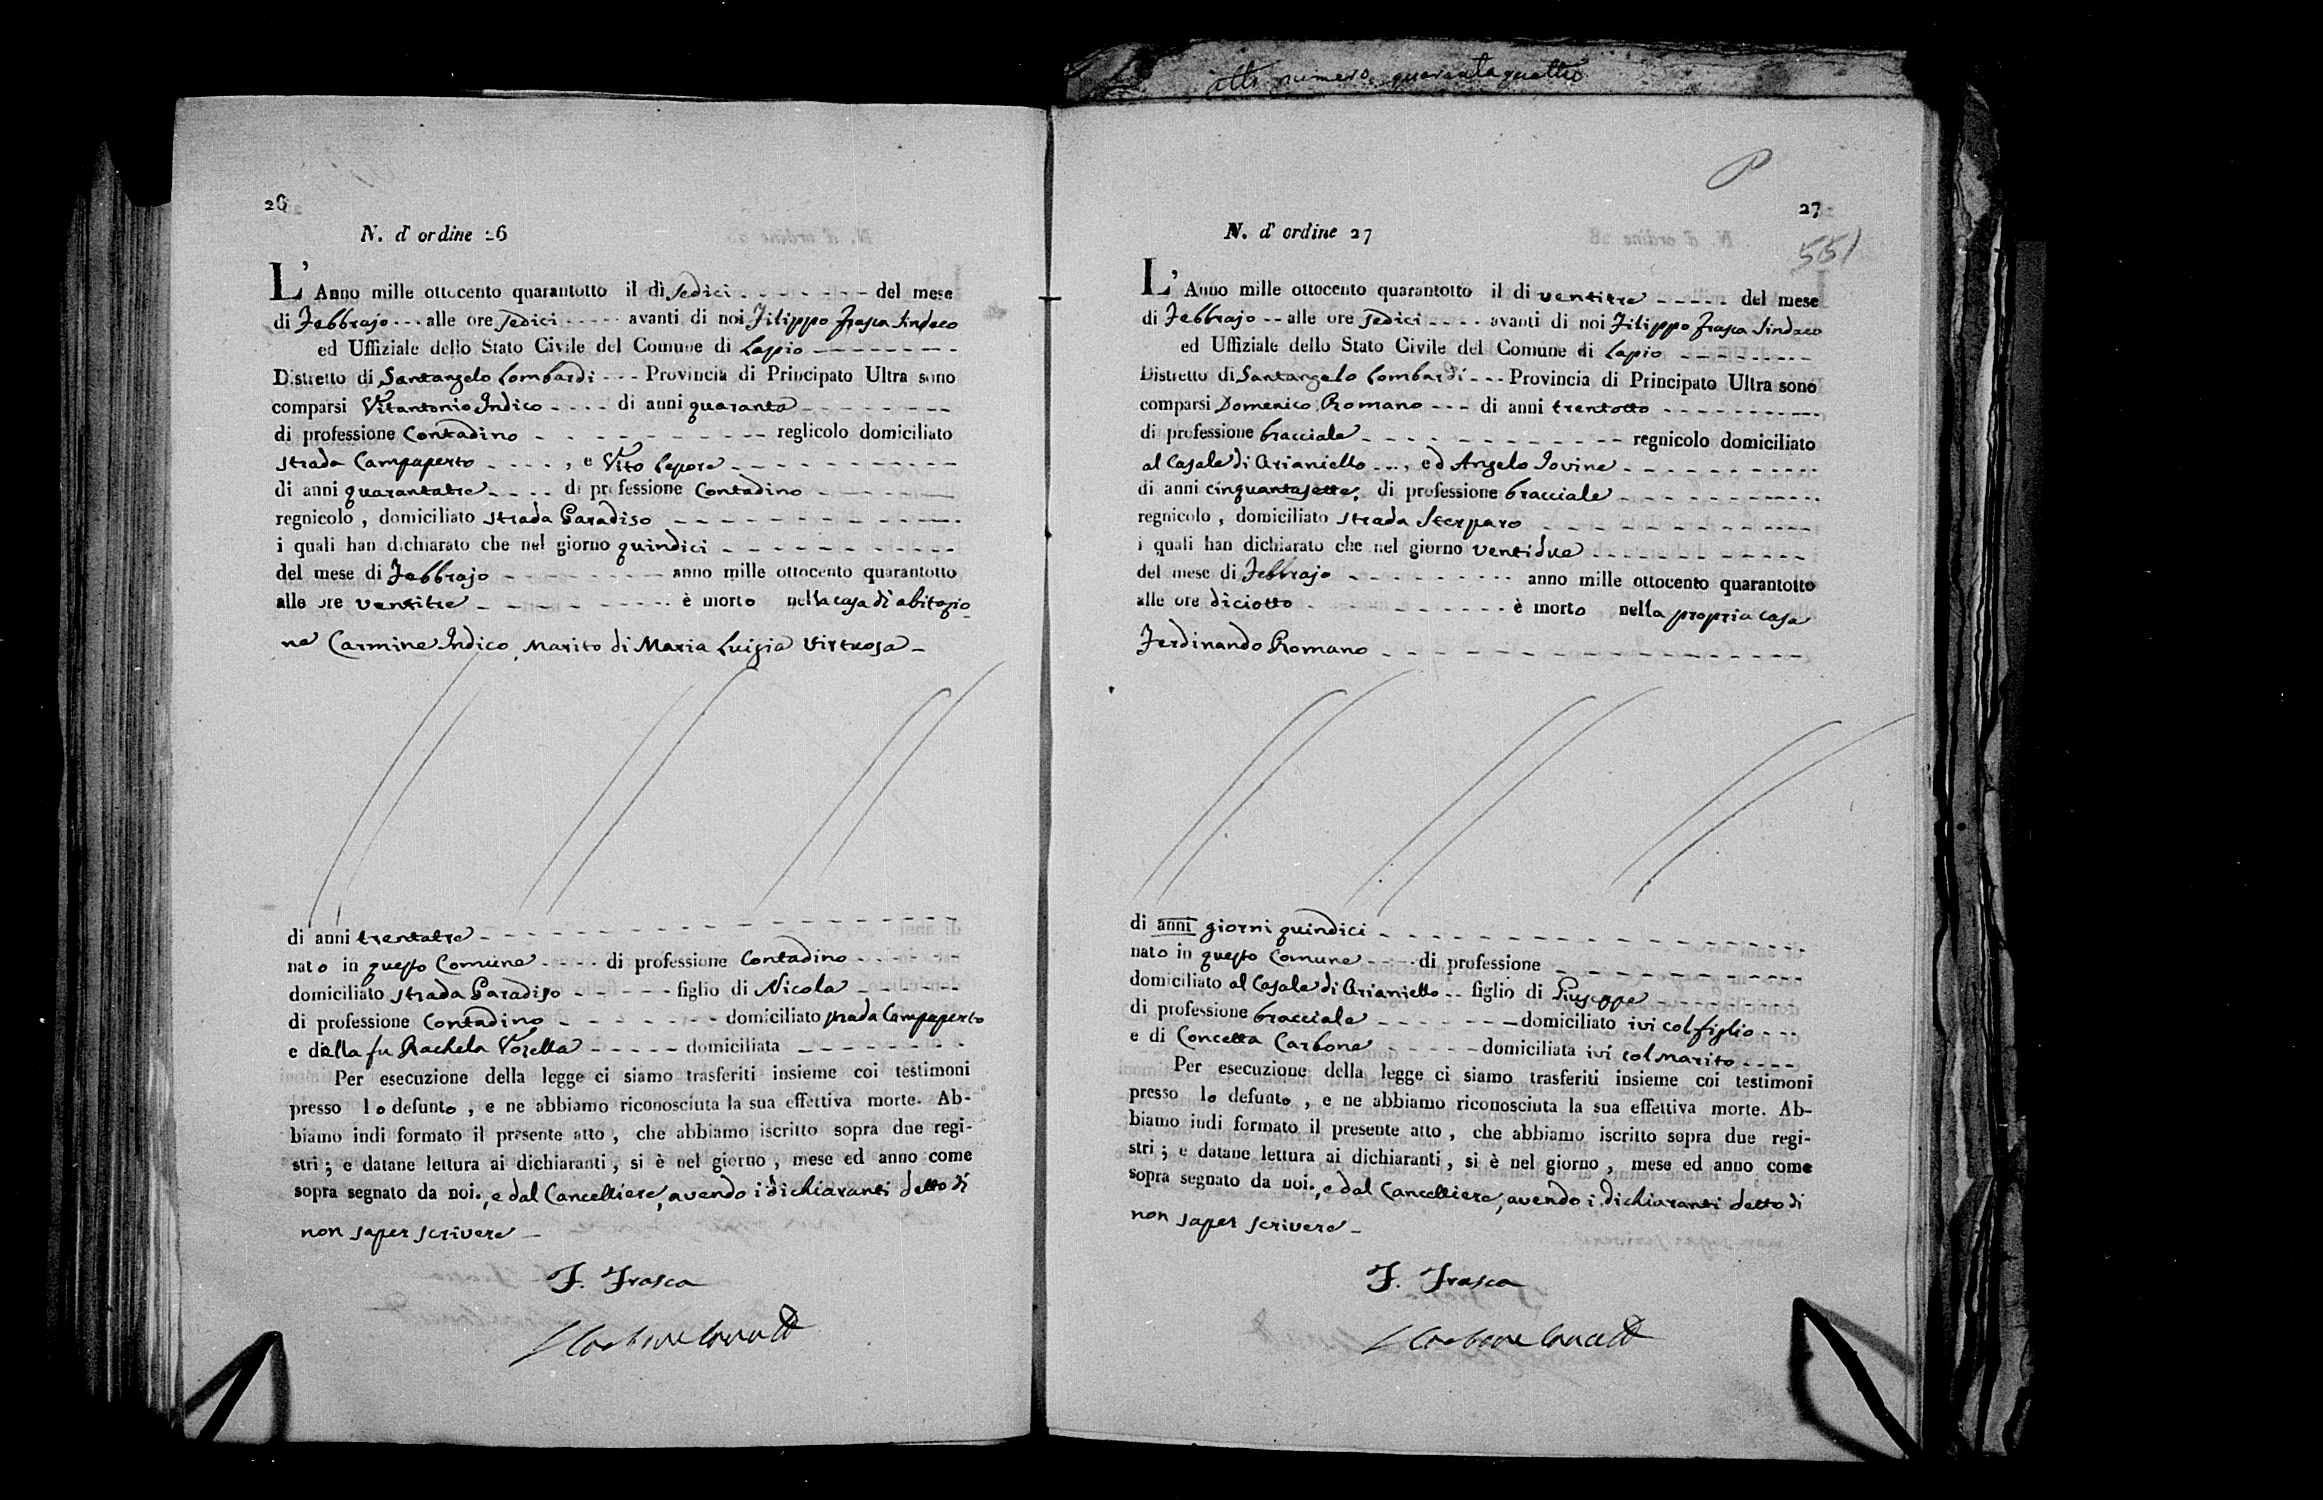 26
N. d' ordine 26
L' Anno mille ottocento quarantotto il dì sedici del mese
di Febbrajo alle ore sedici avanti di noi Filippo Frasca Sindaco
ed Uffiziale dello Stato Civile del Comune di Lapio
Distretto di Santangelo Lombardi Provincia di Principato Ultra sono
comparsi Vitantonio Indico di anni quaranta
di professione Contadino reglicolo domiciliato
strada Campaperto , e Vito Lepore
di anni quarantatre di professione Contadino
regnicolo , domiciliato strada Paradiso
i quali han dichiarato che nel giorno quindici
del mese di Febbrajo anno mille ottocento quarantotto
alle ore ventitre è morto nella casa di abitazio
ne Carmine Indico, marito di Maria Luigia Virtuosa
di anni trentatre
nato in questo Comune di professione Contadino
domiciliato strada Paradiso figlio di Nicola
di professione Contadino domiciliato strada Campaperto
e della fu Rachela Vozella domiciliata
Per esecuzione della legge ci siamo trasferiti insieme coi testimoni
presso lo defunto , e ne abbiamo riconosciuta la sua effettiva morte. Ab-
biamo indi formato il presente atto , che abbiamo iscritto sopra due regi-
stri ; e datane lettura ai dichiaranti , si è nel giorno , mese ed anno come
sopra segnato da noi., e dal Cancelliere, avendo i dichiaranti detto di
non saper scrivere
F. Frasca
atti numero quarantaquattro
27
551
N. d' ordine 27
L' Anno mille ottocento quarantotto il di ventitre del mese
di Febbrajo alle ore sedici avanti di noi Filippo Frasca Sindaco
ed Uffiziale dello Stato Civile del Comune di Lapio
Distretto di Santangelo Lombardi Provincia di Principato Ultra sono
comparsi Domenico Romano di anni trentotto
di professione bracciale regnicolo domiciliato
al Casale di Arianiello , ed Angelo Iovine
di anni cinquantasette, di professione bracciale
regnicolo , domiciliato strada Sterparo
i quali han dichiarato che nel giorno ventidue
del mese di Febbrajo anno mille ottocento quarantotto
alle ore diciotto è morto nella propria casa
Ferdinando Romano
di anni giorni quindici
nato in questo Comune di professione
domiciliato al Casale di Arianiello figlio di Giuseppe
di professione bracciale domiciliato ivi col figlio
e di Concetta Carbone domiciliata ivi col marito
Per esecuzione della legge ci siamo trasferiti insieme coi testimoni
presso lo defunto , e ne abbiamo riconosciuta la sua effettiva morte. Ab-
biamo indi formato il presente atto , che abbiamo iscritto sopra due regi-
stri ; e datane lettura ai dichiaranti , si è nel giorno , mese ed anno come
sopra segnato da noi., e dal Cancelliere, avendo i dichiaranti detto di
non saper scrivere
F. Frasca